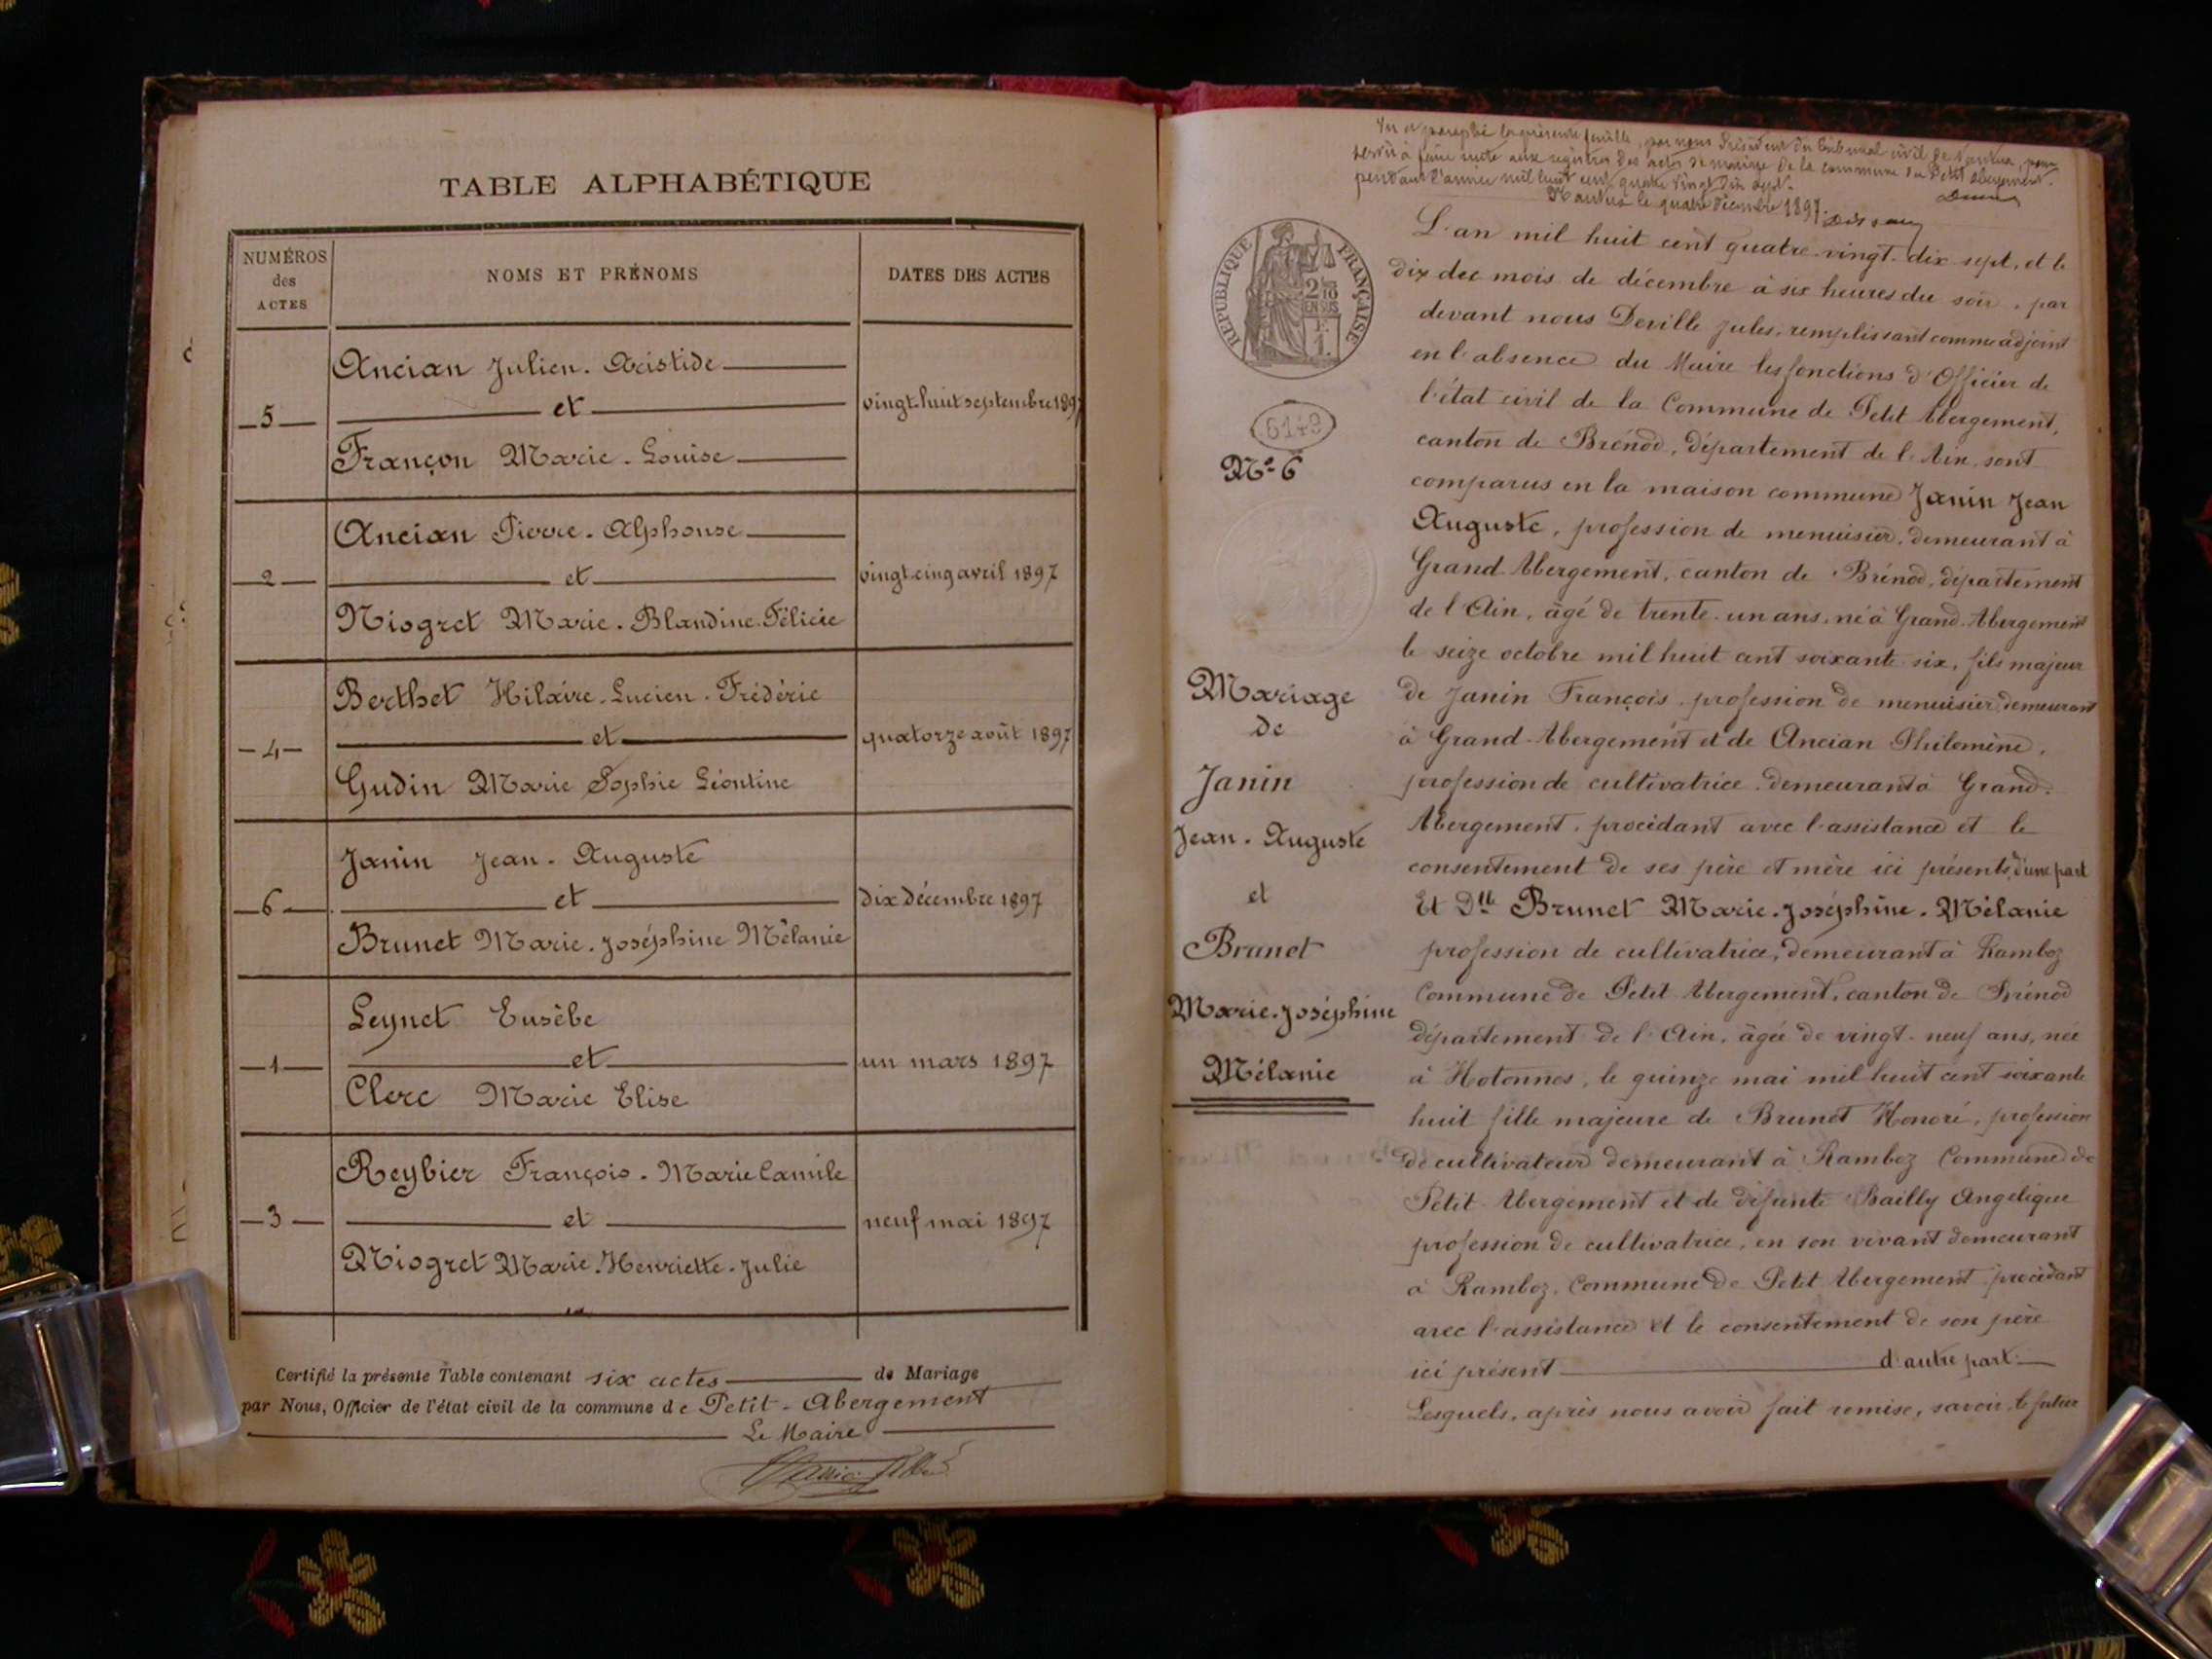 TABLE ALPHABÉTIQUE
NUMÉROS
des
ACTES
NOMS ET PRÉNOMS
DATES DES ACTES
Ancian Julien. Aristide
—5—
et
vingt-huit septembre 1897
Françon Marie-Louise
Ancian Pierre-Alphonse
—2—
et
vingt-cinq avril 1897
Niogret Marie-Blandine-Félicie
Berthet Hilaire-Lucien-Frédéric
—4—
et
quatorze août 1897
Gudin Marie Sophie Léontine
Janin Jean-Auguste
—6—
et
dix décembre 1897
Brunet Marie-Joséphine Mélanie
Leynet Eusèbe
—1—
et
un mars 1897
Clerc Marie Elise
Reybier François-Marie Camile
—3—
et
neuf mai 1897
Niogret Marie-Henriette-Julie
Certifié la présente Table contenant six actes de Mariage
par Nous, Officier de l'état civil de la commune de Petit-Abergement
Le Maire
Vu et paraphé la présente feuille, par nous Président du tribunal civil de Nantua, pour
servir à faire suite aux registres des actes de mariage de la commune du Petit Abergement.
pendant l'année mil huit cent quatre vingt dix sept.
Nantua le quatre Décembre 1897.
RÉPUBLIQUE FRANÇAISE
2/10
EN SUS
6149
N° 6
Mariage
de
Janin
Jean-Auguste
et
Brunet
Marie-Joséphine
Mélanie
L'an mil huit cent quatre-vingt-dix-sept, et le
dix du mois de décembre à six heures du soir, par
devant nous Deville Jules, remplissant comme adjoint
en l'absence du Maire les fonctions d'Officier de
l'état civil de la Commune de Petit Abergement,
canton de Brénod, département de l'Ain, sont
comparus en la maison commune Janin Jean
Auguste, profession de menuisier, demeurant à
Grand Abergement, canton de Brénod, département
de l'Ain, âgé de trente-un ans, né à Grand-Abergement
le seize octobre mil huit cent soixante six, fils majeur
de Janin François, profession de menuisier, demeurant
à Grand-Abergement et de Ancian Philomène,
profession de cultivatrice, demeurant à Grand-
Abergement, procédant avec l'assistance et le
consentement de ses père et mère ici présents, d'une part
Et Dlle Brunet Marie-Joséphine-Mélanie
profession de cultivatrice, demeurant à Ramboz
Commune de Petit Abergement, canton de Brénod
département de l'Ain, âgée de vingt-neuf ans, née
à Hotonnes, le quinze mai mil huit cent soixante
huit fille majeure de Brunet Honoré, profession
de cultivateur demeurant à Ramboz Commune de
Petit-Abergement et de défunte Bailly Angélique
profession de cultivatrice, en son vivant demeurant
à Ramboz, Commune de Petit Abergement procédant
avec l'assistance et le consentement de son père
ici présent d'autre part.
Lesquels, après nous avoir fait remise, savoir, le futur